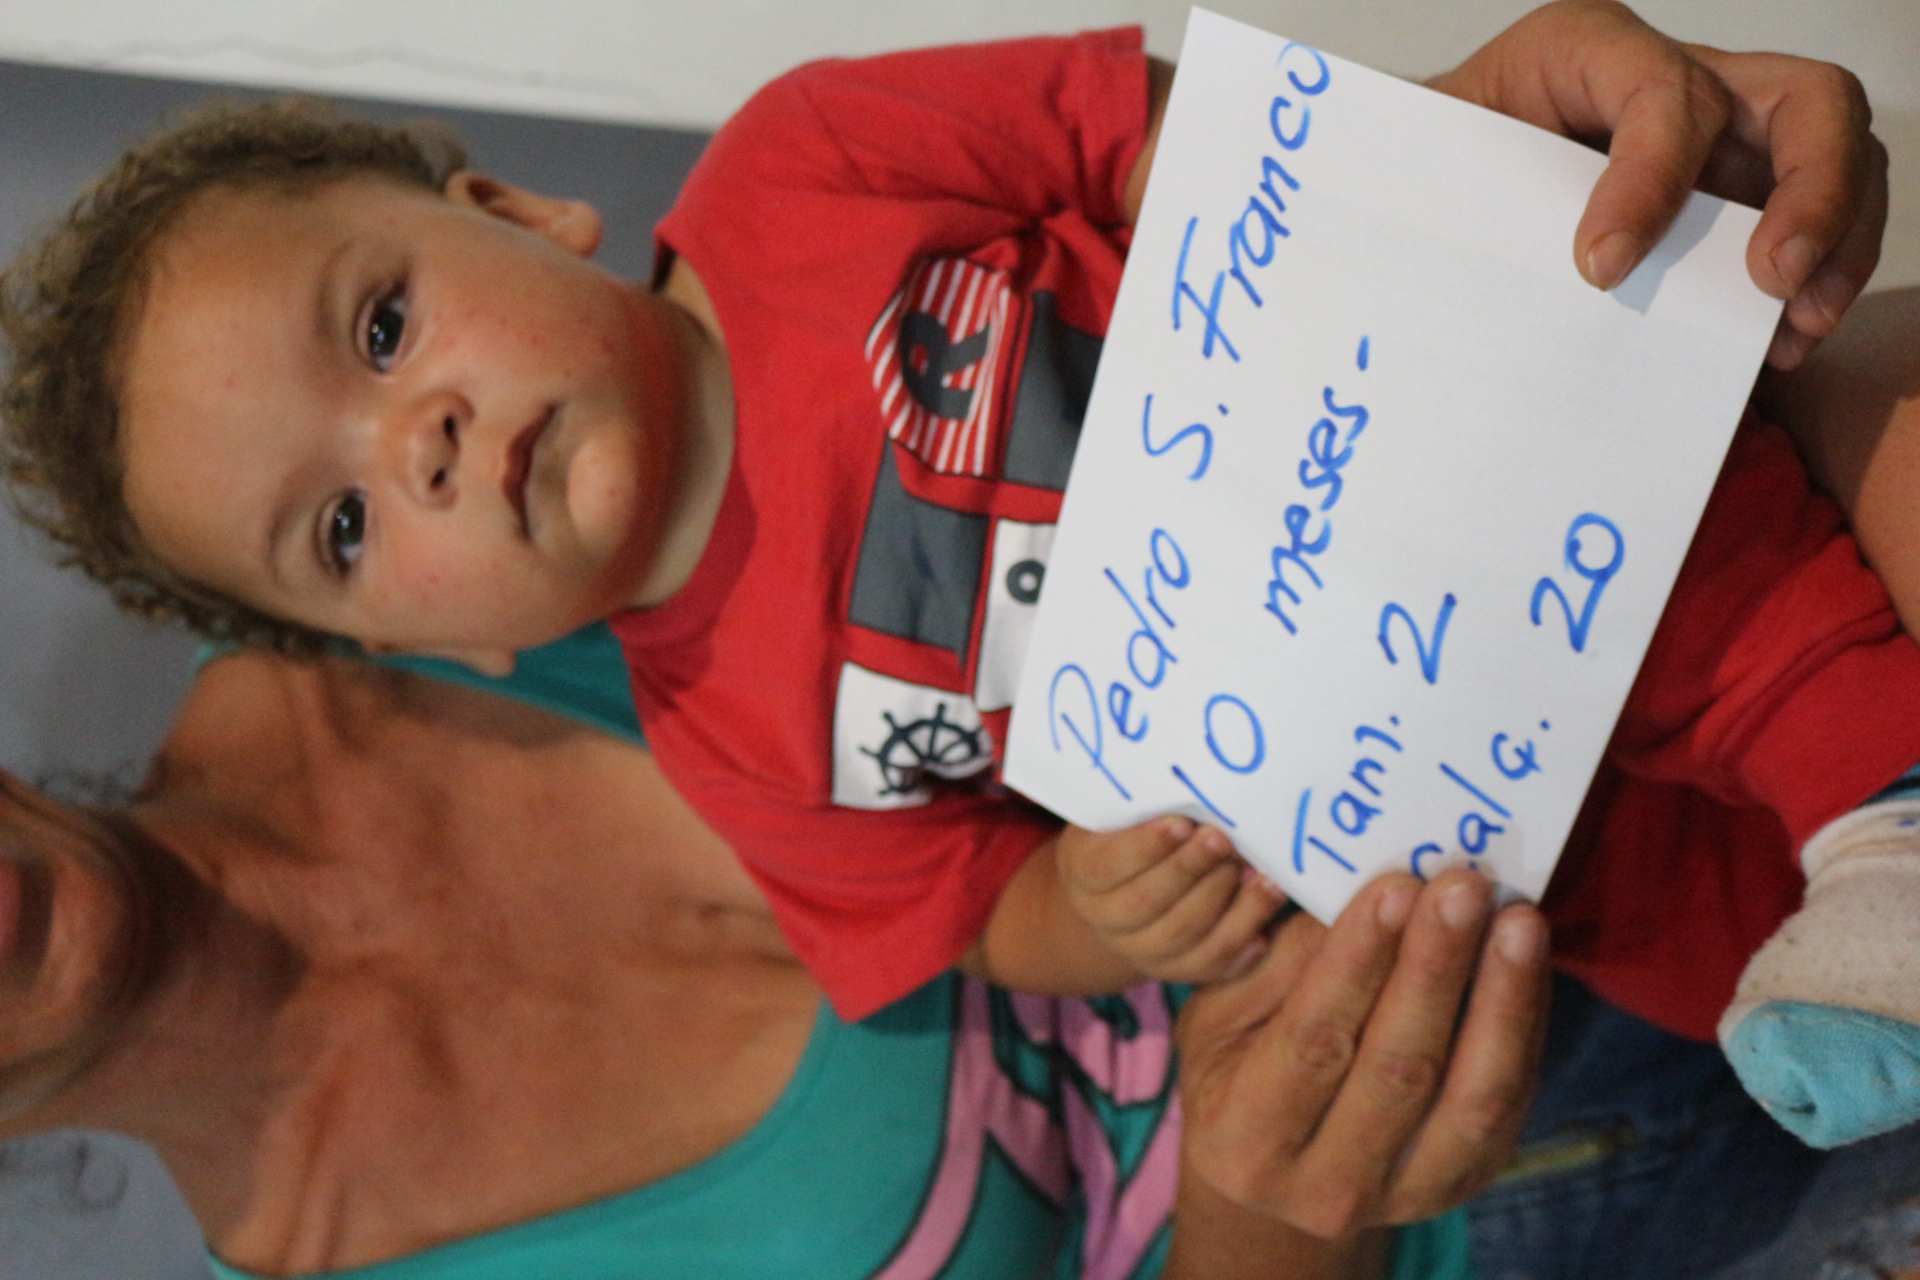 R
Pedro S. Franco
10 meses-
Tam. 2
Calç. 20